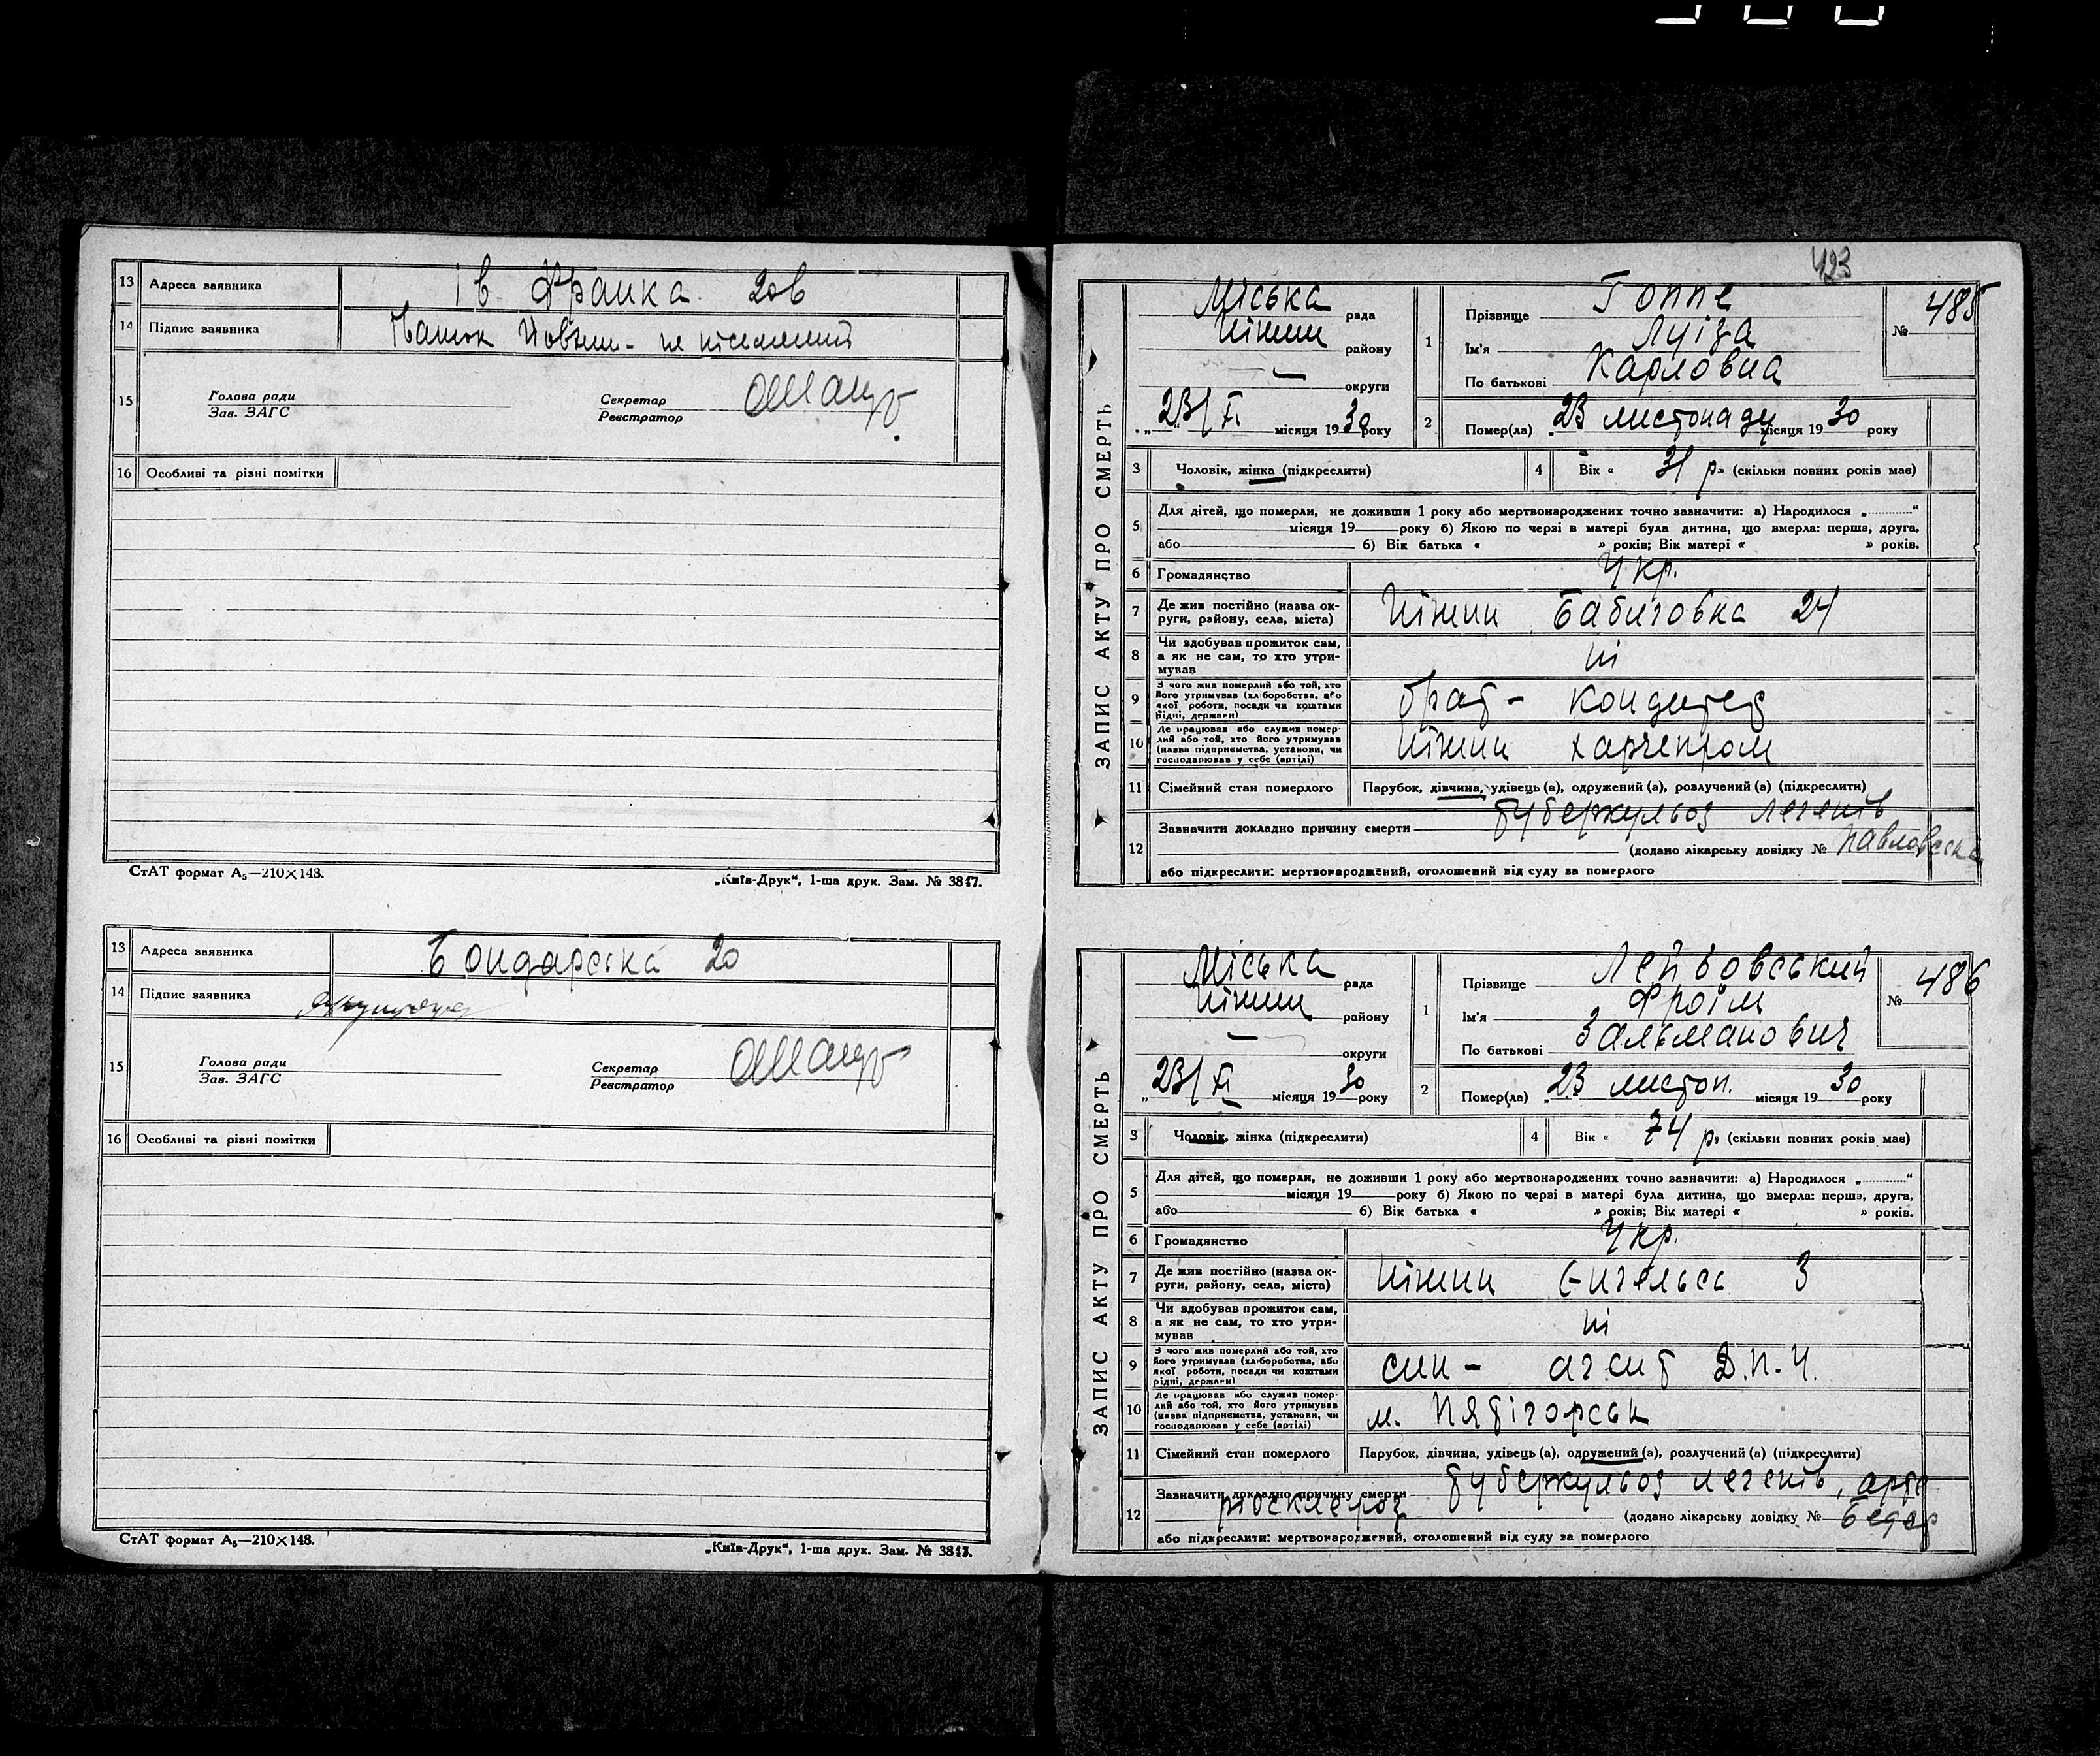 13 Адреса заявника Ів. Франка 20в
14 Підпис заявника
15 Голова ради
Зав. ЗАГС
Секретар
Реєстратор
16 Особливі та різні помітки
СтАТ формат А₅—210×148.
„Київ-Друк“, 1-ша друк. Зам. № 3817.
13 Адреса заявника Бондарська 20
14 Підпис заявника
15 Голова ради
Зав. ЗАГС
Секретар
Реєстратор
16 Особливі та різні помітки
СтАТ формат А₅—210×148.
„Київ-Друк“, 1-ша друк. Зам. № 3817.
423
ЗАПИС АКТУ ПРО СМЕРТЬ
Міська рада
Ніжин району
округи
„23/XI місяця 1930 року
1 Прізвище Гоппе
Ім'я Луіза
По батькові Карловна
№ 485
2 Помер(ла) 23 листопаду місяця 1930 року
3 Чоловік, жінка (підкреслити)
4 Вік « 31 р» (скільки повних років має)
5 Для дітей, що померли, не доживши 1 року або мертвонароджених точно зазначити: а) Народилося „..........“
місяця 19 року б) Якою по черзі в матері була дитина, що вмерла: перша, друга,
або б) Вік батька « » років; Вік матері « » років.
6 Громадянство Укр.
7 Де жив постійно (назва округи, району, села, міста) Ніжин Бабичовка 24
8 Чи здобував прожиток сам, а як не сам, то хто утримував ні
9 З чого жив померлий або той, хто його утримував (хліборобства, або якої роботи, посади чи коштами рідні, держави) брат - кондитер
10 Де працював або служив померлий або той, хто його утримував (назва підприємства, установи, чи господарював у себе (артілі) Ніжин харчепром
11 Сімейний стан померлого Парубок, дівчина, удівець (а), одружений (а), розлучений (а) (підкреслити)
12 Зазначити докладно причину смерти туберкульоз легенів
(додано лікарську довідку № Павловська
або підкреслити: мертвонароджений, оголошений від суду за померлого
ЗАПИС АКТУ ПРО СМЕРТЬ
Міська рада
Ніжин району
округи
„23/XI місяця 1930 року
1 Прізвище
Ім'я Фроїм
По батькові Зальманович
№ 486
2 Помер(ла) 23 листоп. місяця 1930 року
3 Чоловік, жінка (підкреслити)
4 Вік « 74 р» (скільки повних років має)
5 Для дітей, що померли, не доживши 1 року або мертвонароджених точно зазначити: а) Народилося „..........“
місяця 19 року б) Якою по черзі в матері була дитина, що вмерла: перша, друга,
або б) Вік батька « » років; Вік матері « » років.
6 Громадянство Укр.
7 Де жив постійно (назва округи, району, села, міста) Ніжин Енгельса 3
8 Чи здобував прожиток сам, а як не сам, то хто утримував ні
9 З чого жив померлий або той, хто його утримував (хліборобства, або якої роботи, посади чи коштами рідні, держави) син - агент
10 Де працював або служив померлий або той, хто його утримував (назва підприємства, установи, чи господарював у себе (артілі) м. Пятігорськ
11 Сімейний стан померлого Парубок, дівчина, удівець (а), одружений (а), розлучений (а) (підкреслити)
12 Зазначити докладно причину смерти туберкульоз легенів, арте
ріосклероз (додано лікарську довідку №
або підкреслити: мертвонароджений, оголошений від суду за померлого